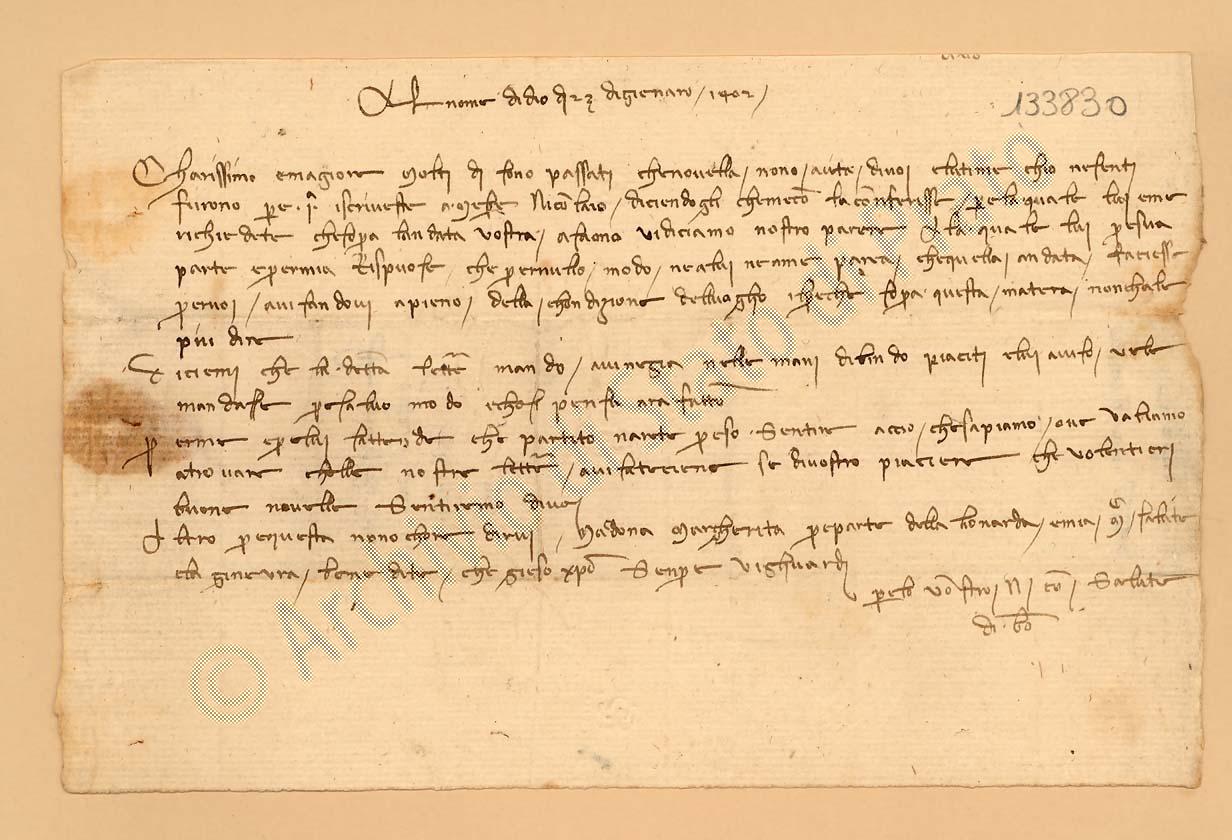 133830
Al nome di dio dì 23 di gienaro 1402
Charissimo e magiore molti dì sono passati che novella nonn o auta di voi e l'atime ch'io ne senti
furono per 1ª iscriveste a Nicolaio diciendogli che meco la conferisse per la quale lui e me
richiedete che sopra l'andata vostra vi diciamo nostro parere a la quale lui per sua
parte e per mia rispuose che per nullo modo né a lui né a me parea che quella andata faciesse
per voi avisandovi a pieno della chondizione del luogho sicché sopra questa matera non chale
più dire
Diciemi che la detta lettera mandò a Vinegia nelle mani di Bindo Piaciti e lui avisò ve le
mandasse per salvo modo e chosì penso arà fatto
per me e per lui s'attende che partito n'arete preso sentire acciò che sapiamo ove vi abiamo
a trovare cholle nostre lettere avisateciene se di vostro piaciere che volentieri
buone novelle sentiremo di voi
Altro per questa nonn ochore dirvi Madona Margherita per parte della Lionarda e mia salutate
e la Ginevra benedite che Gieso Xpo senpre vi ghuardi
per lo vostro Nicolò salute
di Bo